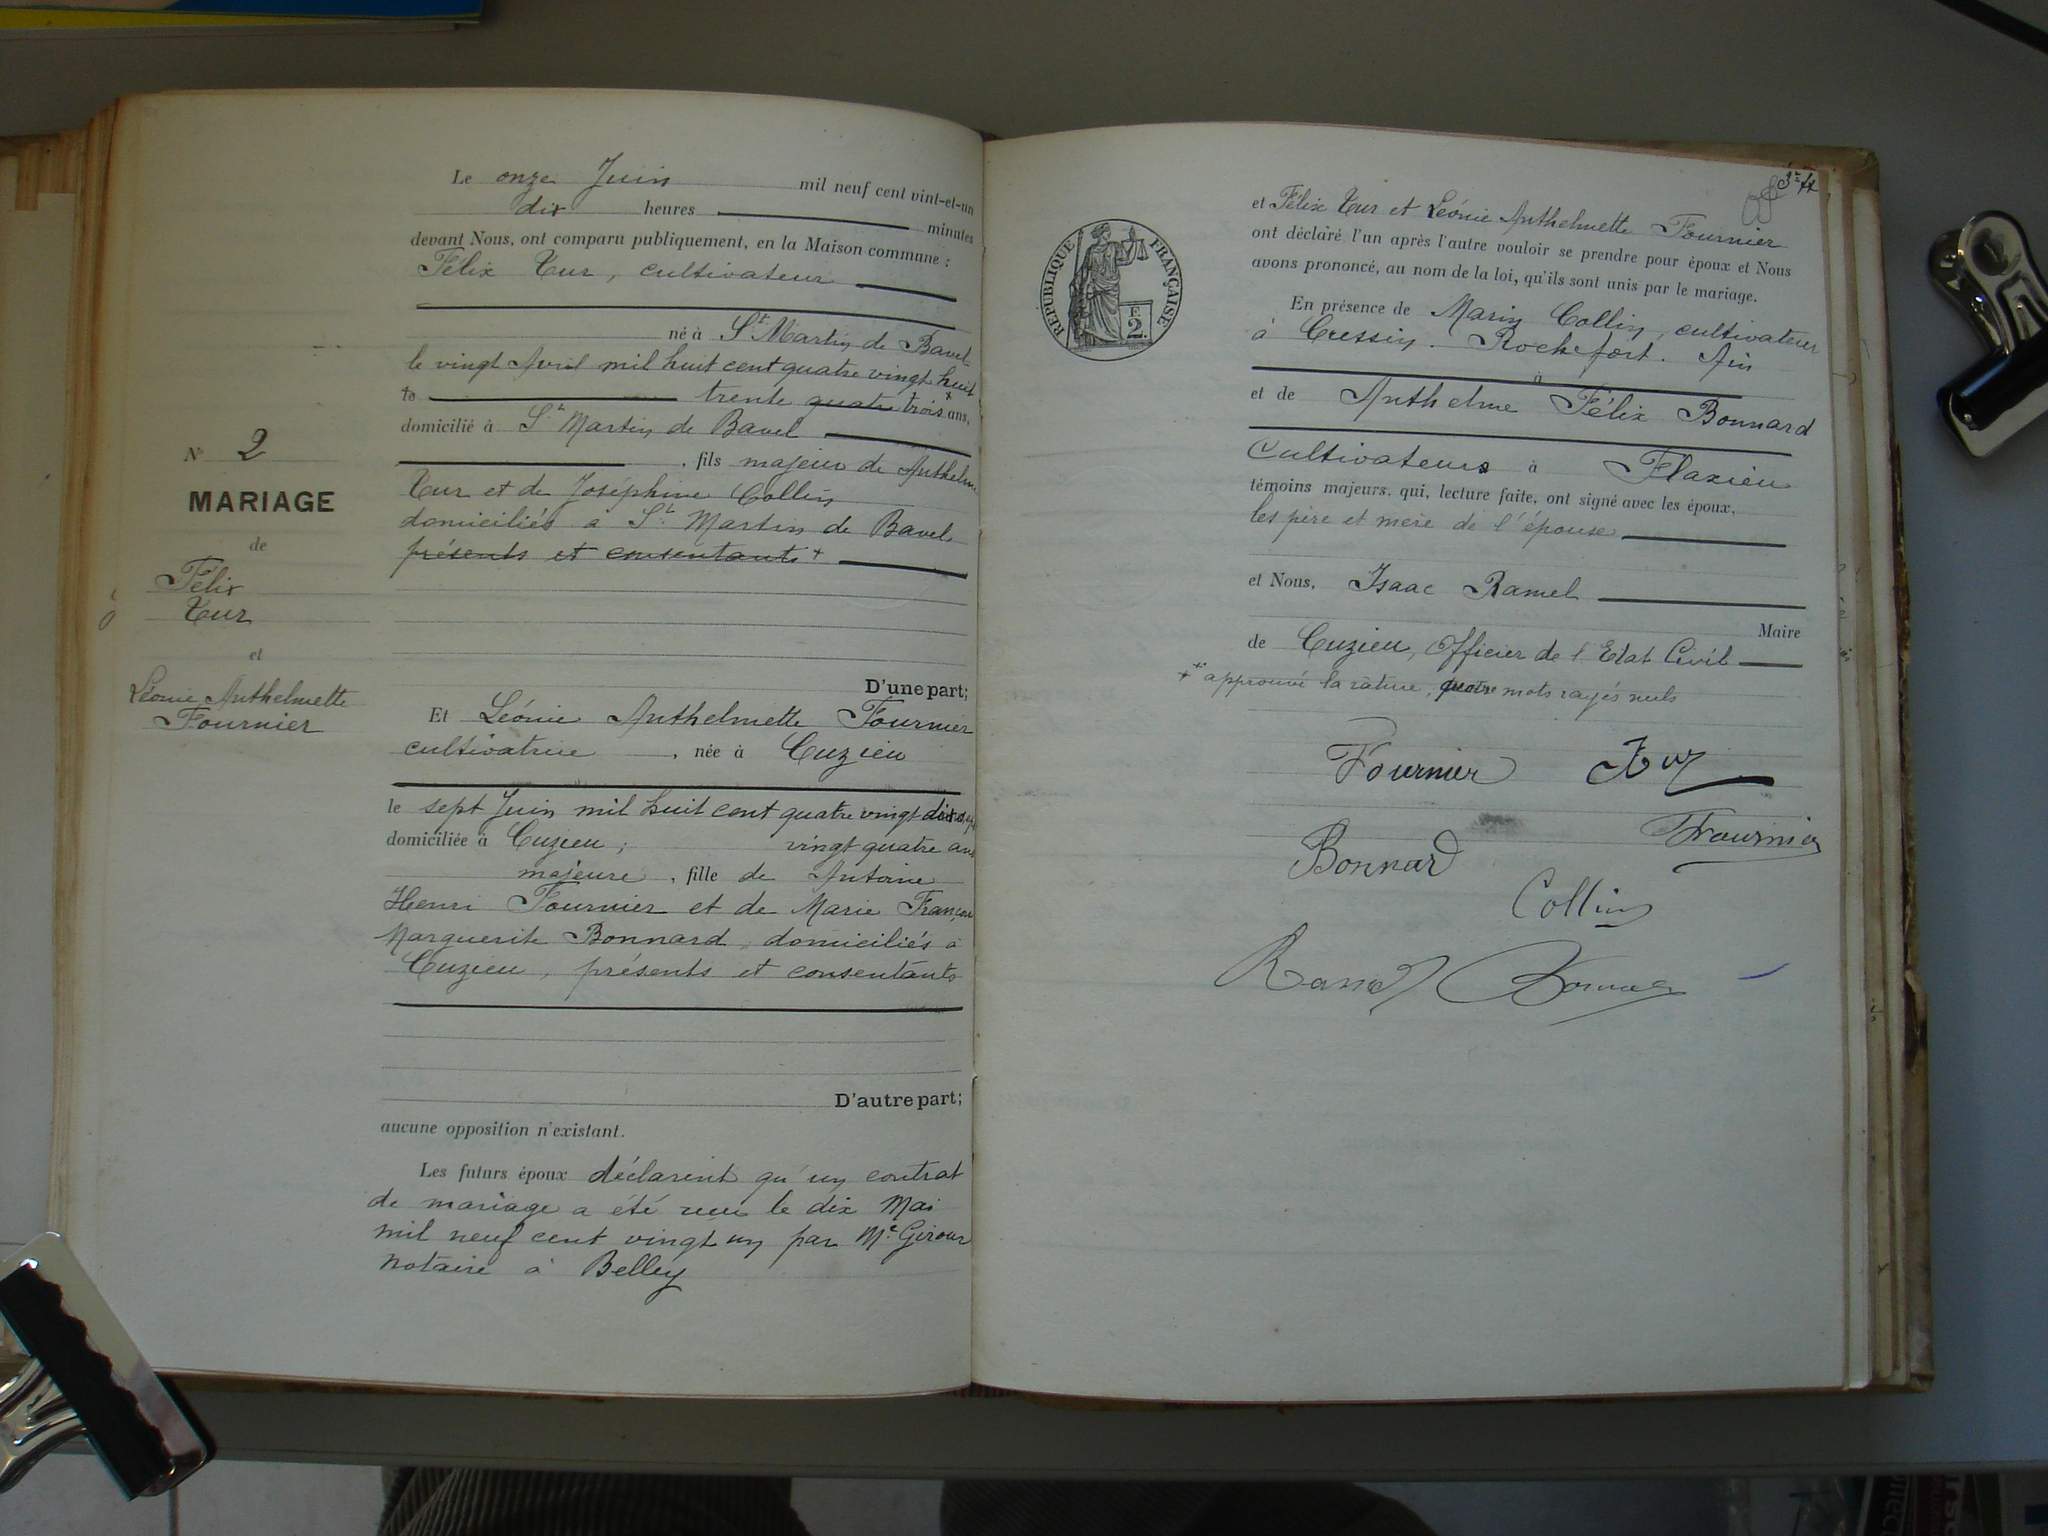 Le onze Juin mil neuf cent vint-et-un
dix heures minutes
devant Nous, ont comparu publiquement, en la Maison commune :
Félix Tur, cultivateur
né à St Martin de Bavel
le vingt Avril mil huit cent quatre vingt huit
trente quatre trois + ans,
domicilié à St Martin de Bavel
, fils majeur de Anthelme
Tur et de Joséphine Collin
domiciliés à St Martin de Bavel
présents et consentants +
N° 2
MARIAGE
de
Félix
Tur
et
Léonie Anthelmette
Fournier
D'une part;
Et Léonie Anthelmette Fournier
cultivatrice , née à Cuzieu
le sept Juin mil huit cent quatre vingt dix sept
domiciliée à Cuzieu, vingt quatre ans
majeure , fille de Antoine
Henri Fournier et de Marie Françoise
Marguerite Bonnard, domiciliés à
Cuzieu, présents et consentants
D'autre part;
aucune opposition n'existant.
Les futurs époux déclarent qu'un contrat
de mariage a été reçu le dix Mai
mil neuf cent vingt un par Me Giroux
notaire à Belley
et Félix Tur et Léonie Anthelmette Fournier
ont déclaré l'un après l'autre vouloir se prendre pour époux et Nous
avons prononcé, au nom de la loi, qu'ils sont unis par le mariage.
RÉPUBLIQUE FRANÇAISE
F
2.
En présence de Marin Collin, cultivateur
à Cressin. Rochefort. Ain
et de Anthelme Félix Bonnard
cultivateurs à Flaxieu
témoins majeurs, qui, lecture faite, ont signé avec les époux,
les père et mère de l'épouse
et Nous, Isaac Ramel
Maire
de Cuzieu, Officier de l'Etat Civil
+ approuvé la rature, quatre mots rayés nuls
Fournier Tur
Fournier
Bonnard
Collin
Ramel Bonnard